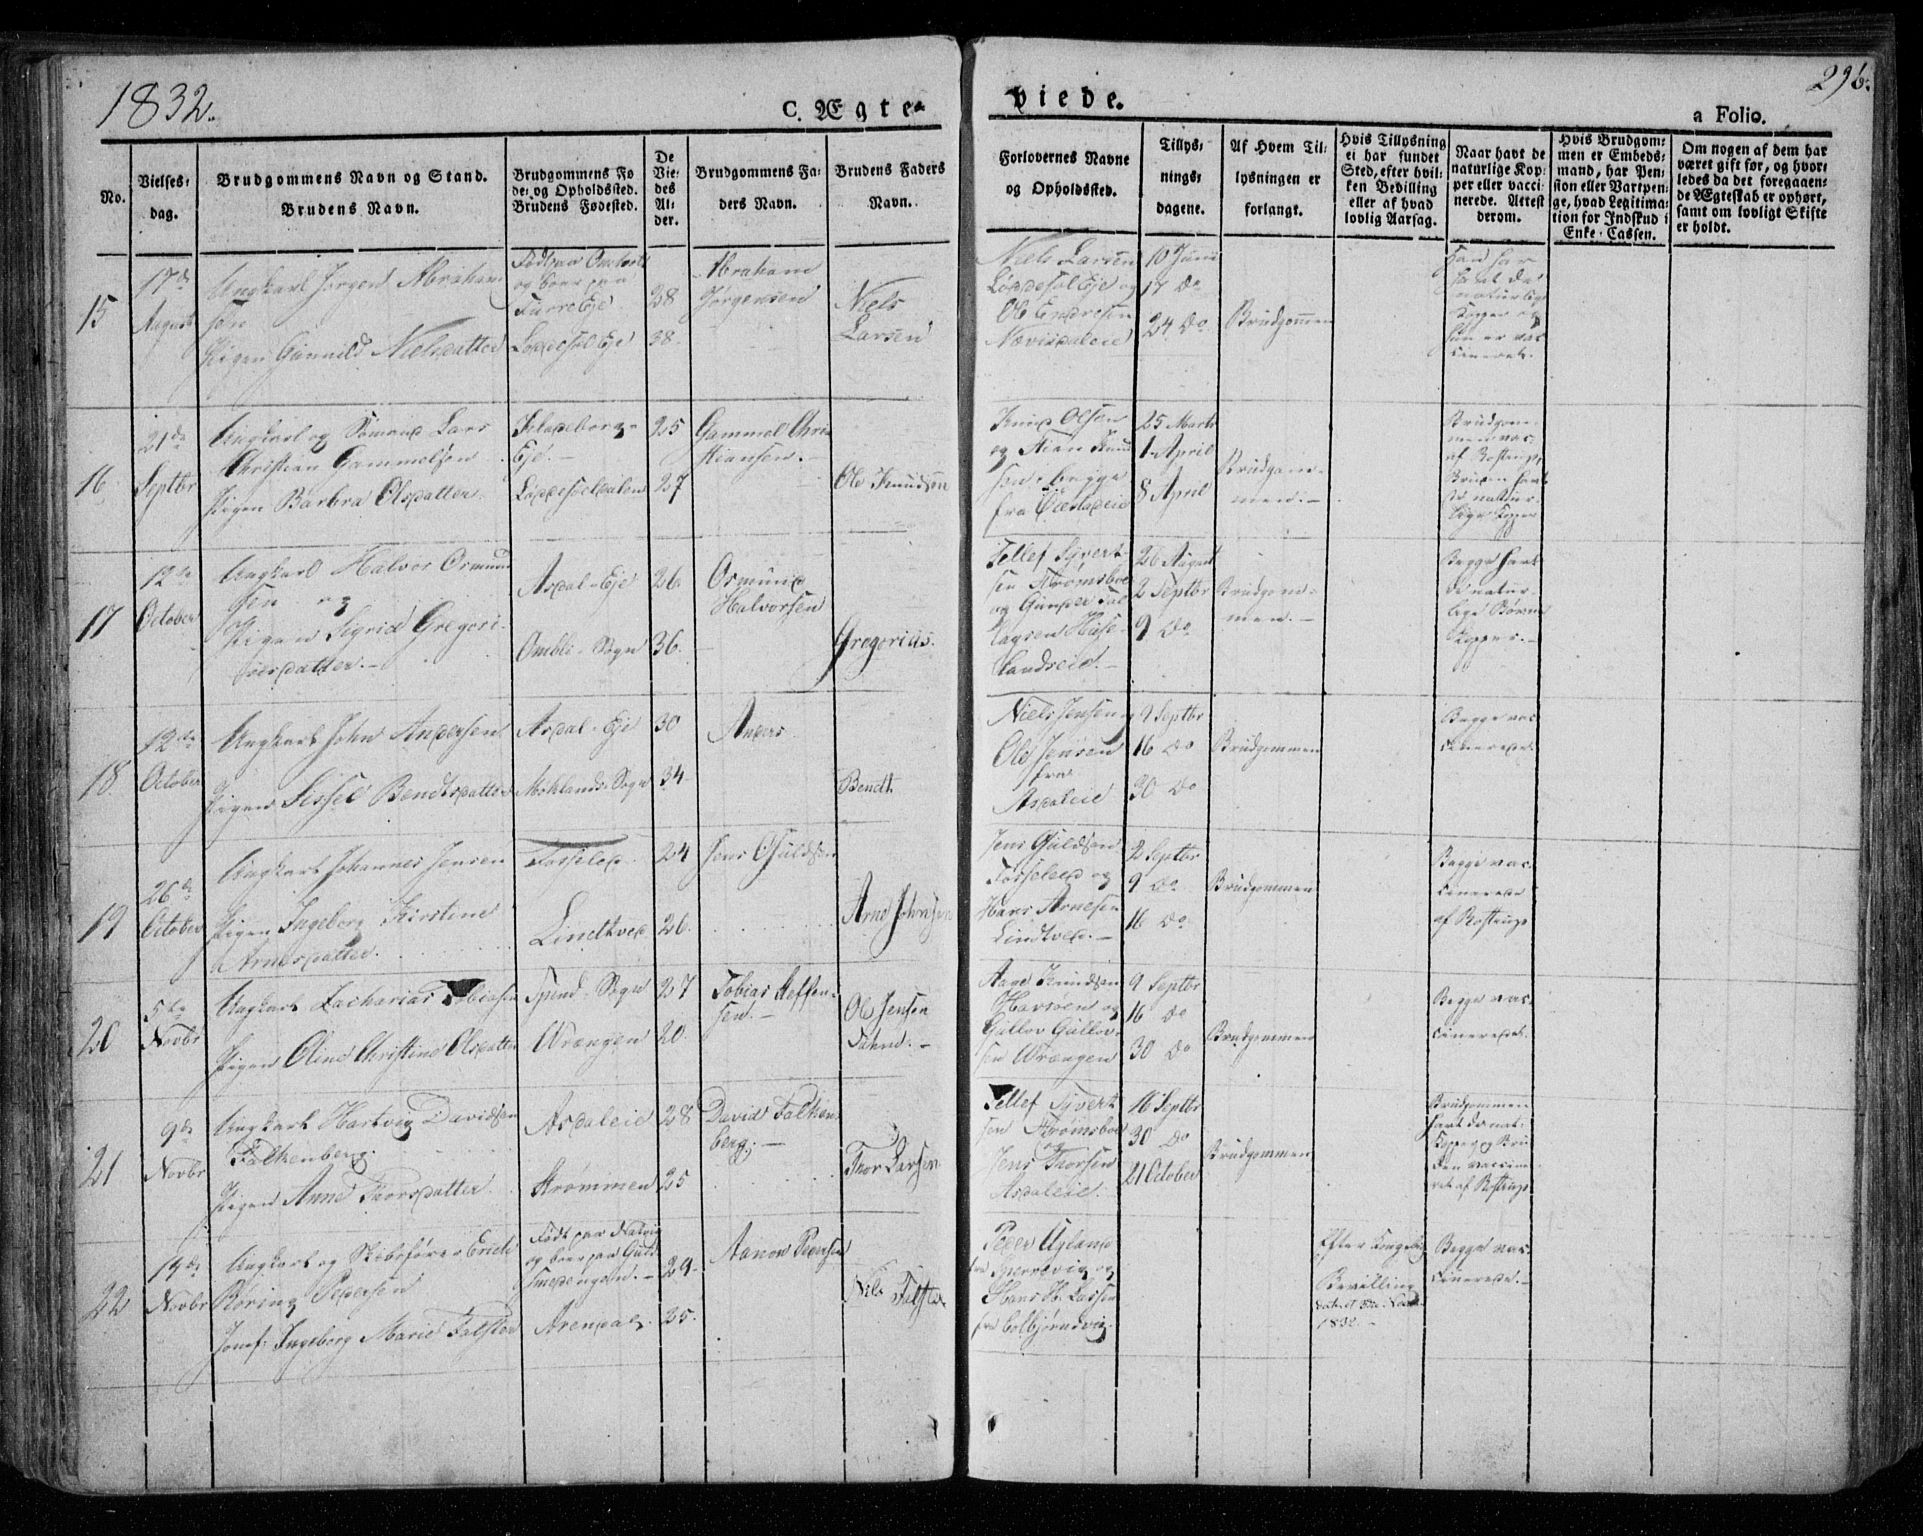 1832.
C. Ægte-
viede.
296.
a Folio.
No.
Vielses-
dag.
Brudgommens Navn og Stand.
Brudens Navn.
Brudgommens Fø-
de- og Opholdssted.
Brudens Fødested.
De
Vie-
des
Al-
der.
Brudgommens Fa-
ders Navn.
Brudens Faders
Navn.
Forlovernes Navne
og Opholdssted.
Tillys-
nings-
dagene.
Af Hvem Til-
lysningen er
forlangt.
Hvis Tillysning
ei har fundet
Sted, efter hvil-
ken Bevilling
eller af hvad
lovlig Aarsag.
Naar havt de
naturlige Kop-
per eller vacci-
nerede. Attest
derom.
Hvis Brudgom-
men er Embeds-
mand, har Pen-
sion eller Vartpen-
ge, hvad Legitima-
tion for Indskud i
Enke-Cassen.
Om nogen af dem har
været gift før, og hvor-
ledes da det foregaaen-
de Ægteskab er ophørt,
samt om lovligt Skifte
er holdt.
15
17de
August
Ungkarl Jørgen Abraham-
sen
Pigen Gunnild Nielsdatter
og boer paa
Eje
Løddesøl Eje
28
38.
Abraham
Jørgensen
Niels
Larsen
Niels Larsen
Løddesøl Eje og
Ole Endresen
10 Juni
17 Do
24 Do
Brudgommen
Han har
havt de
naturlige
Kopper og
hun er vac-
cineret.
16
21de
Septbr
Ungkarl og Sømand Lars
Christian Gammelsen
Pigen Barbra Olsdatter
Eje.
Løddesøldalen
25
27
Gammel Chri-
stiansen.
Ole Knudsen
Knud Olsen
og Stian Knud-
sen begge
fra
25 Marts
1 April
8 April
Brudgom-
men.
Brudgom-
men vac.
af Rostrup,
Bruden havt
de natur-
lige Kopper
17
12te
October
Ungkarl Halvor Osmund-
sen og
Pigen Sigrid Gregori-
usdatter.
Asdal-Eje
Ombli-Sogn
26.
36.
Osmund
Halvorsen
Gregorius.
Tellef Syvert-
sen Strømsboe
og Gunder Tal-
laksen
26 August
2 Septbr
9 Do
Brudgom-
men.
Begge havt
de natur-
lige Børne
Kopper.
18.
12te
October
Ungkarl John Andersen
Pigen Sissel Bendtsdatter
Asdal-Eje
Moklands-Sogn
30
34
Anders
Bendt
Niels Jensen og
Ole Jensen
fra
Asdaleie
9 Septbr
16 Do
30 Do
Brudgommen
Begge vac-
cinerede.
19
26de
October
Ungkarl Johannes Jensen
Pigen Ingeborg Kirstine
Arnesdatter.
Fosseled
Lindtved
24
26.
Jens Gjuldsen
Arne Johnsen
Jens Gjuldsen
Fosseled og
Hans Arnesen
Lindtved.
2 Septbr
9 Do
16 Do
Brudgommen
Begge vac-
cinerede
af Rostrup
20
5te
Novbr
Ungkarl Zacharias Tobiasen
Pigen Oline Christine Olsdatter
Spind-Sogn
Wrængen
27
20.
Tobias Steffen-
sen.
Ole Jensen
Aage Knudsen
og
Gullov Gullov-
sen Wrængen
9 Septbr
16 Do
30 Do
Brudgommen
Begge vac-
cinerede.
21
9de
Novbr
Ungkarl Hartvig Davidsen
Falkenberg.
Pigen Anne Thorsdatter.
Asdaleie
Strømmen
28
25
David Falken-
berg.
Thor Larsen
Tellef Syvert
sen Strømsboe
og
Jens Thorsen
Asdaleie.
16 Septbr
30 Do
21 October
Brudgommen
Brudgommen
havt de nat.
Kopper og Bru-
den vaccine-
ret af Rostrup
22
19de
Novbr
Ungkarl og Skibsfører Erich
Røring Pedersen
Jomf: Ingeborg Marie Falster
Født paa
og boer paa Guld-
smedengen.
Arendal.
29.
25.
Aanon Pedersen
Nils Falster
Peder Ugland
fra og
Hans H. Lassen
fra Colbjørnsvig.
Efter Kongelig
Bevilling
1832.
Begge vac-
cinerede.